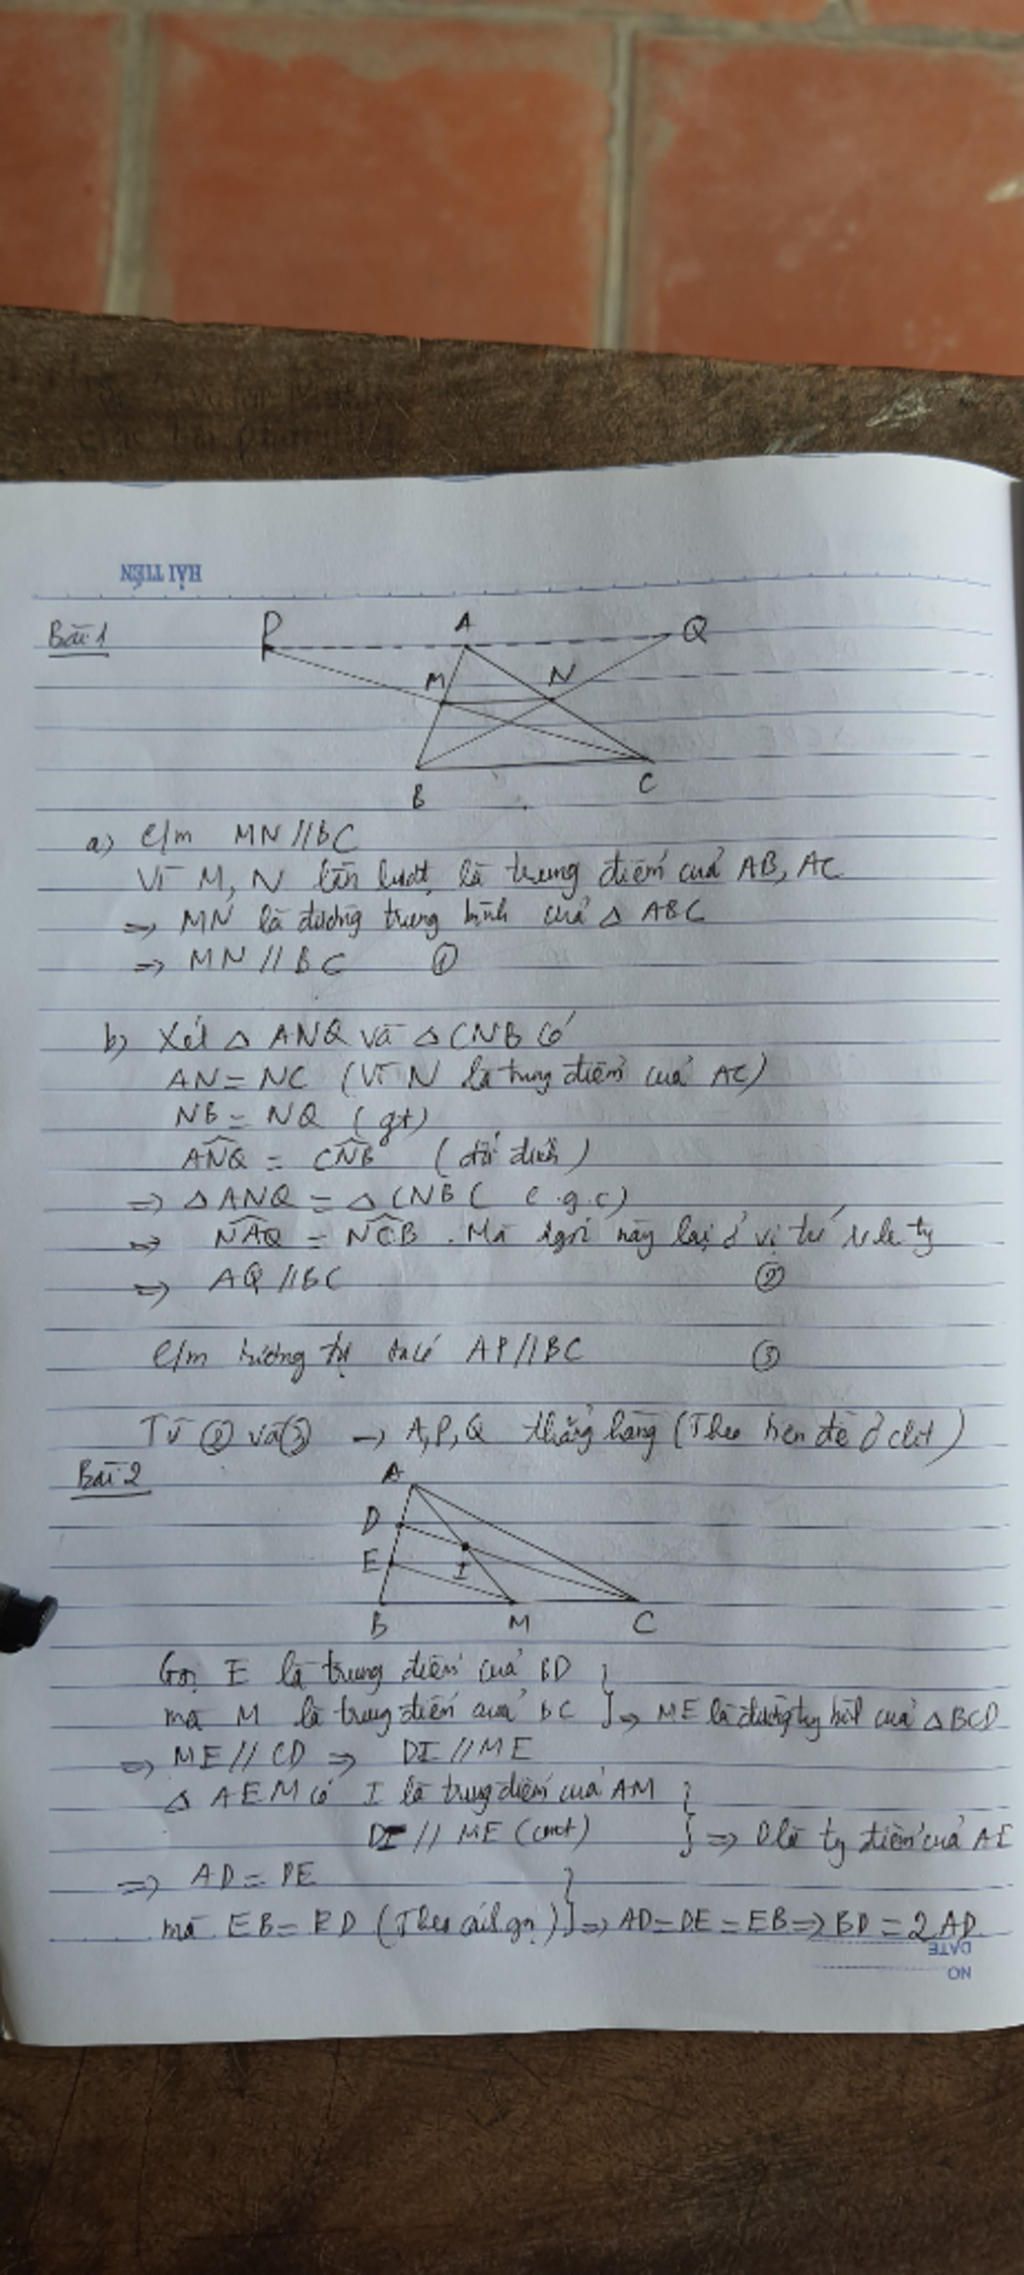 HẢI TIẾN
Bài 1
P A Q
M N
B C
a) c/m MN//BC
Vì M, N lần lượt là trung điểm của AB, AC
=> MN là đường trung bình của Δ ABC
=> MN // BC ①
b) Xét Δ ANQ và Δ CNB có
AN = NC (Vì N là trung điểm của AC)
NB = NQ (gt)
ANQ = CNB (đối đỉnh)
=> Δ ANQ = Δ CNB ( c.g.c)
=> NAQ = NCB . Mà 2 góc này lại ở vị trí so le
=> AQ // BC ②
c/m tương tự ta có AP//BC ③
Từ ② và ③ → A, P, Q thẳng hàng (Theo tiên đề Ơclit)
Bài 2
A
D
E I
B M C
Gọi E là trung điểm của BD }
mà M là trung điểm của BC } => ME là đường trg bình của Δ BCD
=> ME // CD => DI // ME
Δ AEM có I là trung điểm của AM }
DI // ME (cmt) } => D là tg điểm của AE
=> AD = DE }
mà EB = ED (Theo cách gọi) } => AD = DE = EB => BD = 2 AD
DATE
NO